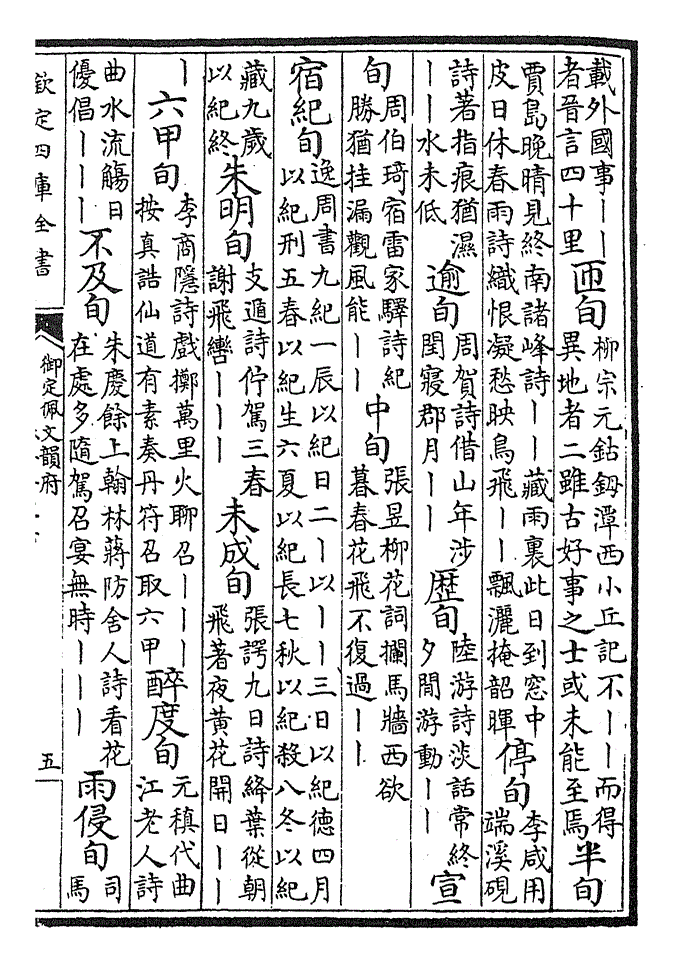 載外國事丨丨
者音言四十里
匝旬
柳宗元鈷鉧潭西小丘記不丨丨而得
異地者二雖古好事之士或未能至焉
半旬
賈島晚晴見終南諸峰詩丨丨藏雨裏此日到窓中
皮日休春雨詩織恨凝愁映鳥飛丨丨飄灑掩韶暉
停旬
李咸用
端溪硯
詩著指痕猶濕
丨丨水未低
逾旬
周賀詩借山年涉
閏寢郡月丨丨
歴旬
陸游詩淡話常終
夕閒游動丨丨
宣
旬
周伯琦宿雷家驛詩紀
勝猶挂漏觀風能丨丨
中旬
張昱柳花詞攔馬牆西欲
暮春花飛不復過丨丨
宿紀旬
逸周書九紀一辰以紀日二丨以丨丨三日以紀德四月
以紀刑五春以紀生六夏以紀長七秋以紀殺八冬以紀
藏九歲
以紀終
朱明旬
支遁詩佇駕三春
謝飛轡丨丨丨
未成旬
張諤九日詩絳葉從朝
飛著夜黃花開日丨丨
丨
六甲旬
李商隱詩戲擲萬里火聊召丨丨丨
按真誥仙道有素奏丹符召取六甲
醉度旬
元稹代曲
江老人詩
曲水流觴日
優倡丨丨丨
不及旬
朱慶餘上翰林蔣防舍人詩看花
在處多隨駕召宴無時丨丨丨
雨侵旬
司
馬
欽定四庫全書
御定佩文韻府
五